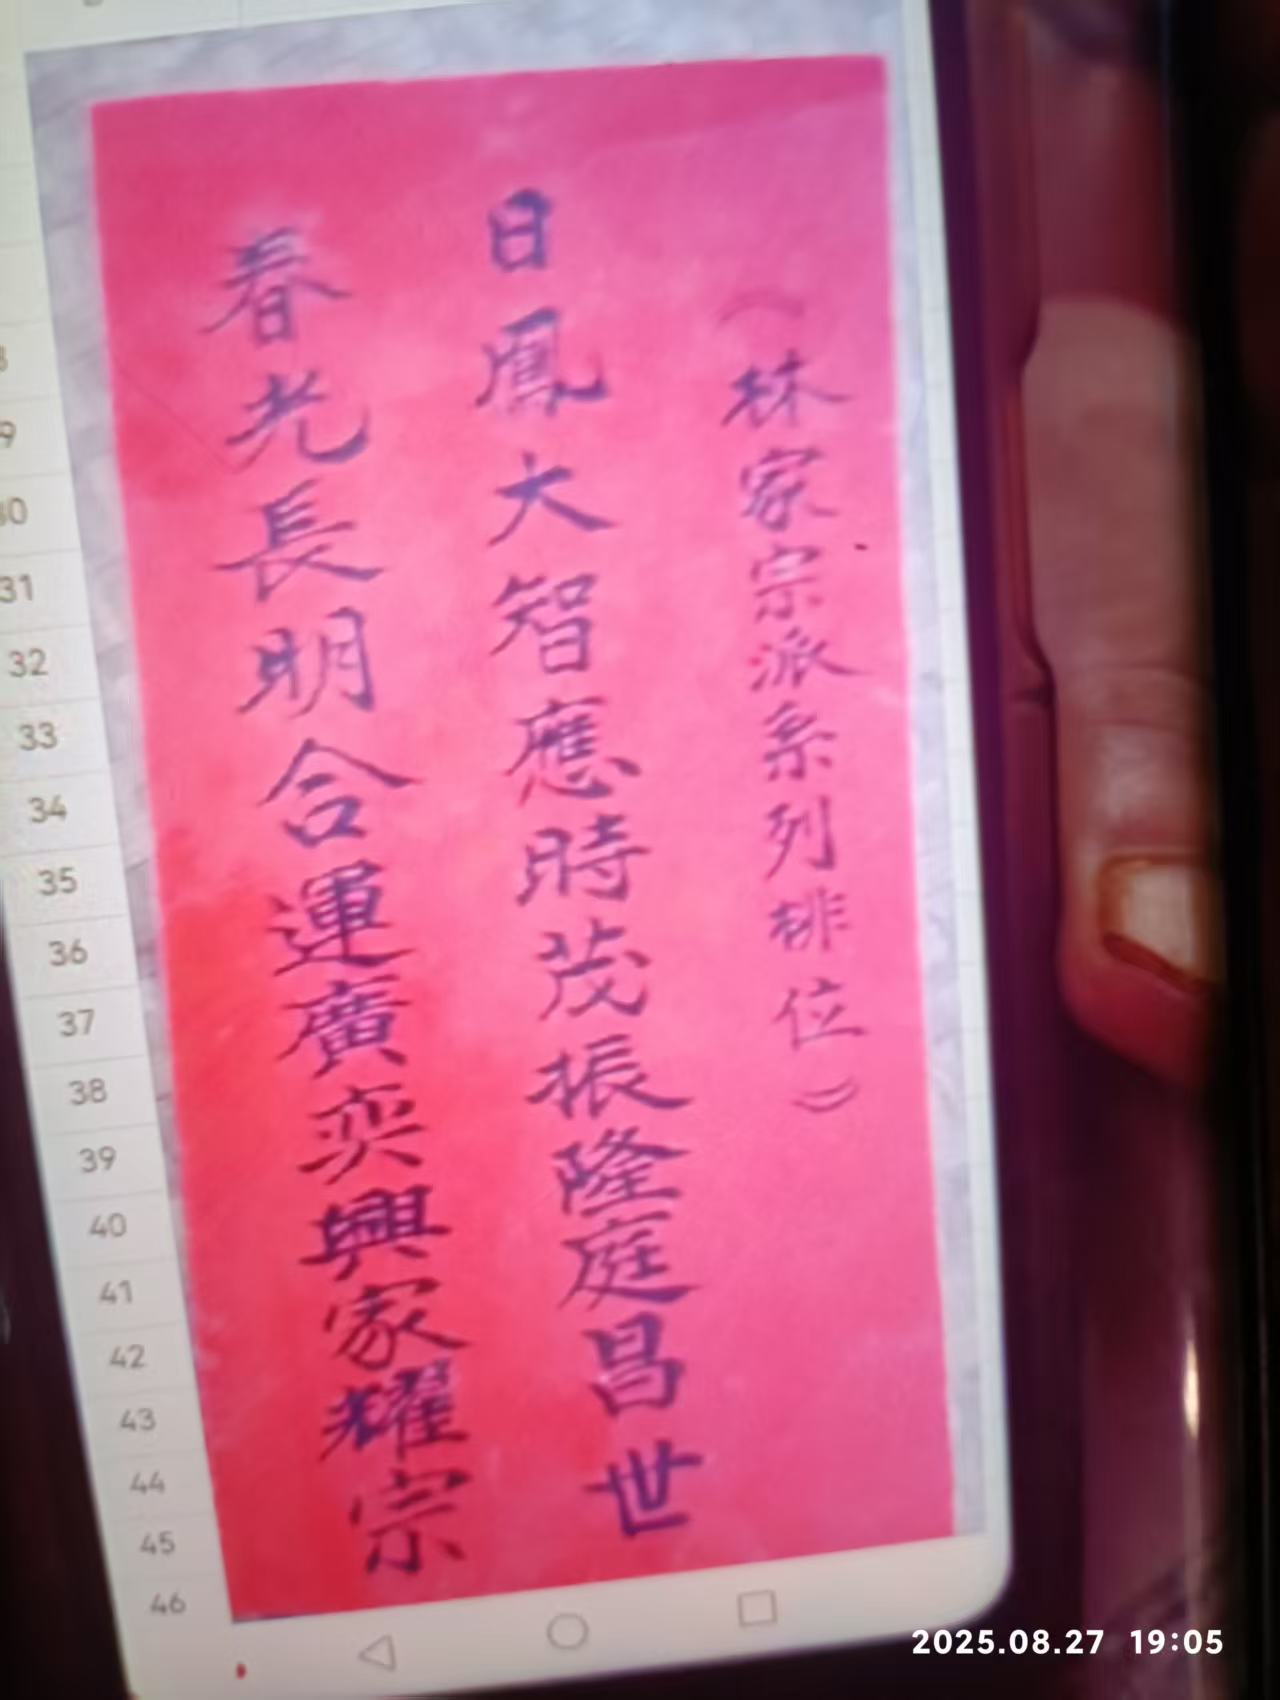 （林家宗派系列排位）
日鳳大智應時茂振隆庭昌世
春光長明合運廣奕興家耀宗
31
32
33
34
35
36
37
38
39
40
41
42
43
44
45
46
2025.08.27 19:05